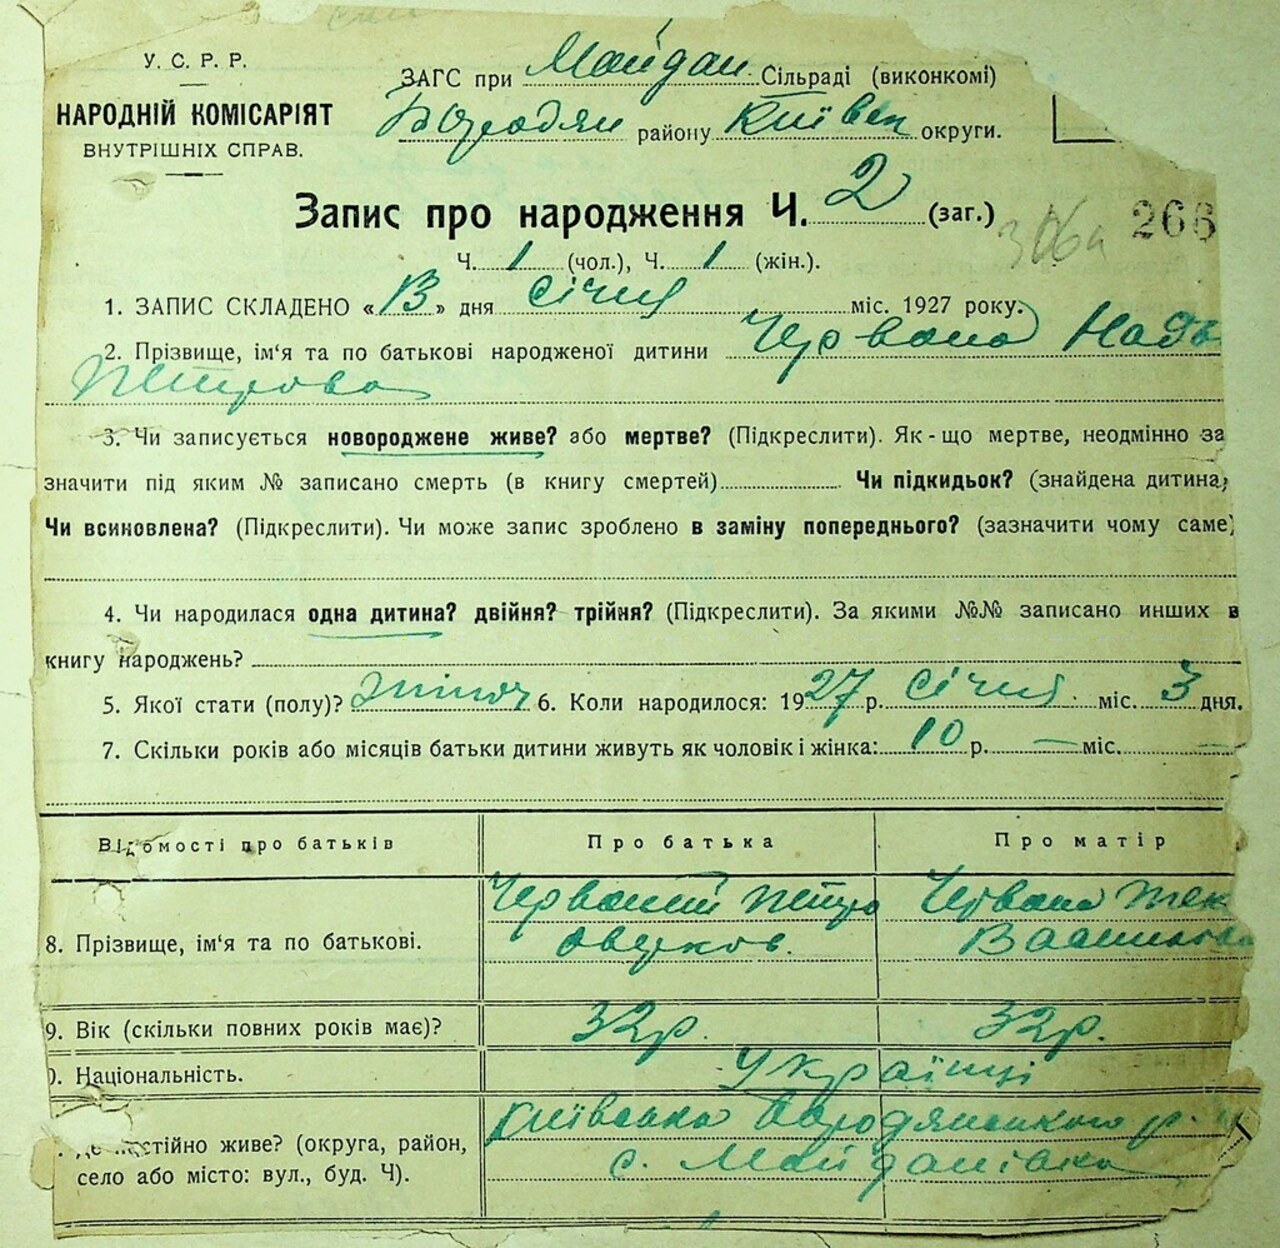 У. С. Р. Р.
НАРОДНІЙ КОМІСАРІЯТ
ВНУТРІШНІХ СПРАВ.
ЗАГС при Майдан Сільраді (виконкомі)
Бородян району Київск округи.
Запис про народження Ч. 2 (заг.)
306а 266
Ч. 1 (чол.), Ч. 1 (жін.).
1. ЗАПИС СКЛАДЕНО «13» дня Січня міс. 1927 року.
2. Прізвище, ім‘я та по батькові народженої дитини Червона Надь
Петрова
3. Чи записується новороджене живе? або мертве? (Підкреслити). Як-що мертве, неодмінно за
значити під яким № записано смерть (в книгу смертей) Чи підкидьок? (знайдена дитина)
Чи всиновлена? (Підкреслити). Чи може запис зроблено в заміну попереднього? (зазначити чому саме)
4. Чи народилася одна дитина? двійня? трійня? (Підкреслити). За якими №№ записано инших в
книгу народжень?
5. Якої стати (полу)? жіноч 6. Коли народилося: 1927 р. Січня міс. 3 дня.
7. Скільки років або місяців батьки дитини живуть як чоловік і жінка: 10 р. — міс. —
Відомості про батьків Про батька Про матір
Червоний Петро Червона Тек
8. Прізвище, ім‘я та по батькові. Васильова
9. Вік (скільки повних років має)? 32р. 32р.
). Національність. Українці
Київська Бородянського р.
. Де постійно живе? (округа, район,
с. Майданівка
село або місто: вул., буд. Ч).